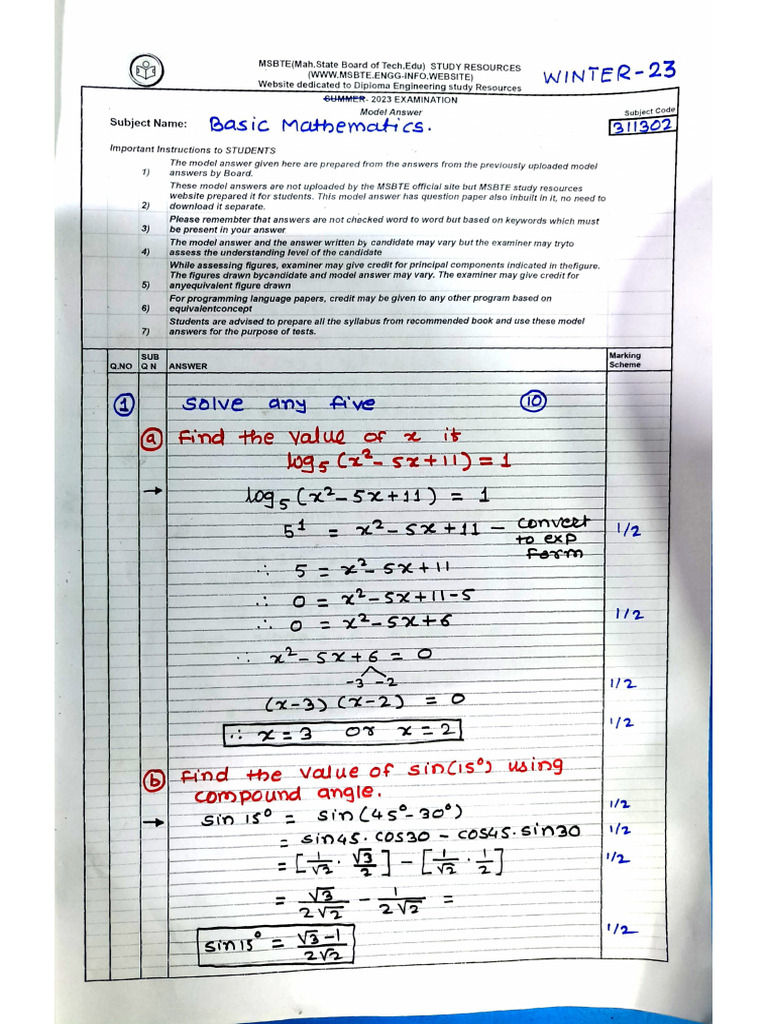 MSBTE(Mah.State Board of Tech.Edu) STUDY RESOURCES
(WWW.MSBTE.ENGG-INFO.WEBSITE)
Website dedicated to Diploma Engineering study Resources
WINTER-23
SUMMER- 2023 EXAMINATION
Model Answer
Subject Code
Subject Name: Basic Mathematics.
311302
Important Instructions to STUDENTS
The model answer given here are prepared from the answers from the previously uploaded model
1) answers by Board.
These model answers are not uploaded by the MSBTE official site but MSBTE study resources
website prepared it for students. This model answer has question paper also inbuilt in it, no need to
2) download it separate.
Please remembter that answers are not checked word to word but based on keywords which must
3) be present in your answer
The model answer and the answer written by candidate may vary but the examiner may tryto
4) assess the understanding level of the candidate
While assessing figures, examiner may give credit for principal components indicated in thefigure.
The figures drawn bycandidate and model answer may vary. The examiner may give credit for
5) anyequivalent figure drawn
For programming language papers, credit may be given to any other program based on
6) equivalentconcept
Students are advised to prepare all the syllabus from recommended book and use these model
7) answers for the purpose of tests.
Q.NO SUB Q N ANSWER Marking Scheme
1 Solve any five 10
a Find the value of x if
log₅(x²-5x+11)=1
→ log₅(x²-5x+11) = 1
5¹ = x²-5x+11 - convert to exp form 1/2
∴ 5 = x²-5x+11
∴ 0 = x²-5x+11-5
∴ 0 = x²-5x+6 1/2
∴ x²-5x+6 = 0
-3 -2 1/2
(x-3) (x-2) = 0
∴ x=3 or x=2 1/2
b Find the value of sin(15°) using
compound angle.
→ sin 15° = sin(45°-30°) 1/2
= sin45·cos30 - cos45·sin30 1/2
= [1/√2 · √3/2] - [1/√2 · 1/2] 1/2
= √3/2√2 - 1/2√2 =
sin15° = √3-1/2√2 1/2